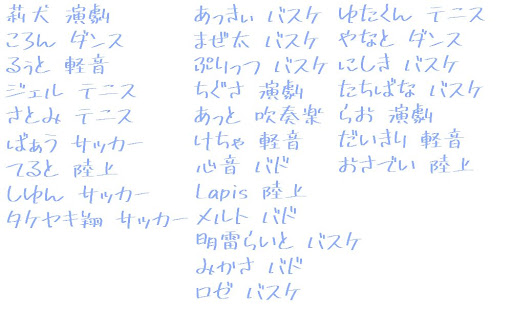 莉犬 演劇
ころん ダンス
るぅと 軽音
ジェル テニス
さとみ テニス
ばぁう サッカー
てると 陸上
しゆん サッカー
タケヤキ翔 サッカー
あっきぃ バスケ
まぜ太 バスケ
ぷりっつ バスケ
ちぐさ 演劇
あっと 吹奏楽
けちゃ 軽音
心音 バド
Lapis 陸上
メルト バド
明雷らいと バスケ
みかさ バド
ロゼ バスケ
ゆたくん テニス
やなと ダンス
にしき バスケ
たちばな バスケ
らお 演劇
だいきり 軽音
おさでい 陸上